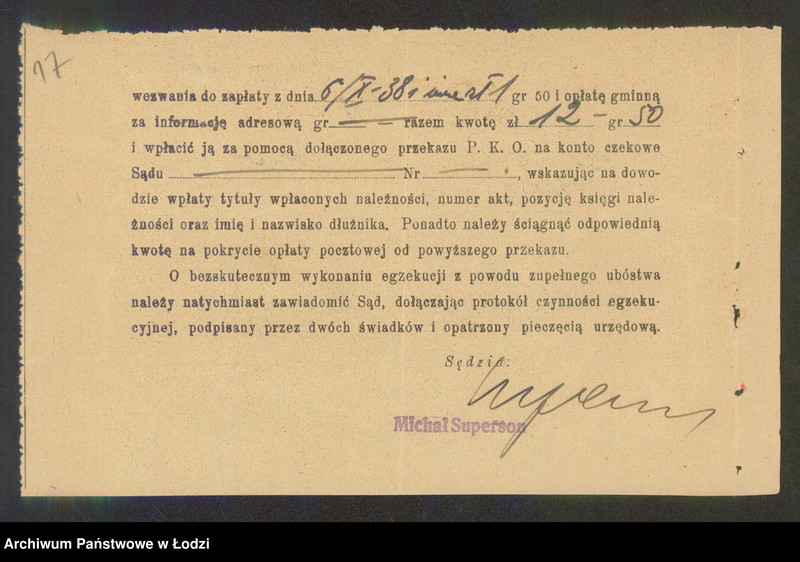 17
wezwania do zapłaty z dnia 6/X-38 i inne zł 1 gr 50 i opłatę gminną
za informację adresową gr — — razem kwotę zł 12 — gr 50
i wpłacić ją za pomocą dołączonego przekazu P. K. O. na konto czekowe
Sądu — Nr — , wskazując na dowo-
dzie wpłaty tytuły wpłaconych należności, numer akt, pozycję księgi nale-
żności oraz imię i nazwisko dłużnika. Ponadto należy ściągnąć odpowiednią
kwotę na pokrycie opłaty pocztowej od powyższego przekazu.
O bezskutecznym wykonaniu egzekucji z powodu zupełnego ubóstwa
należy natychmiast zawiadomić Sąd, dołączając protokół czynności egzeku-
cyjnej, podpisany przez dwóch świadków i opatrzony pieczęcią urzędową.
Sędzia:
Michał Superson
Archiwum Państwowe w Łodzi